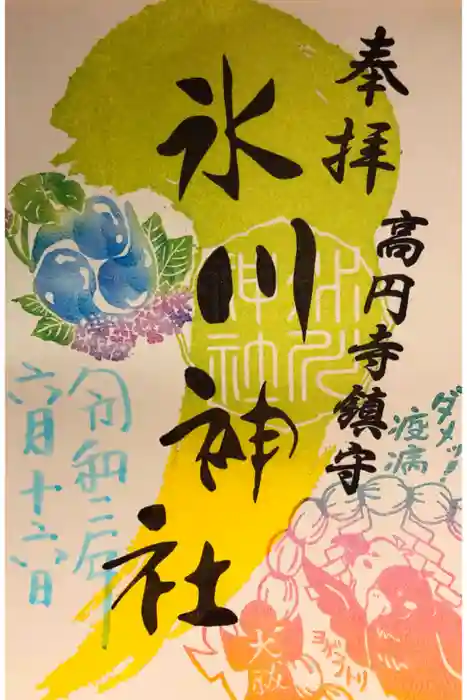 奉拝
高円寺鎮守
氷川神社
氷川
神社
令和二年
六月十六日
ダメッ!
疫病
大祓
ヨゲンノトリ